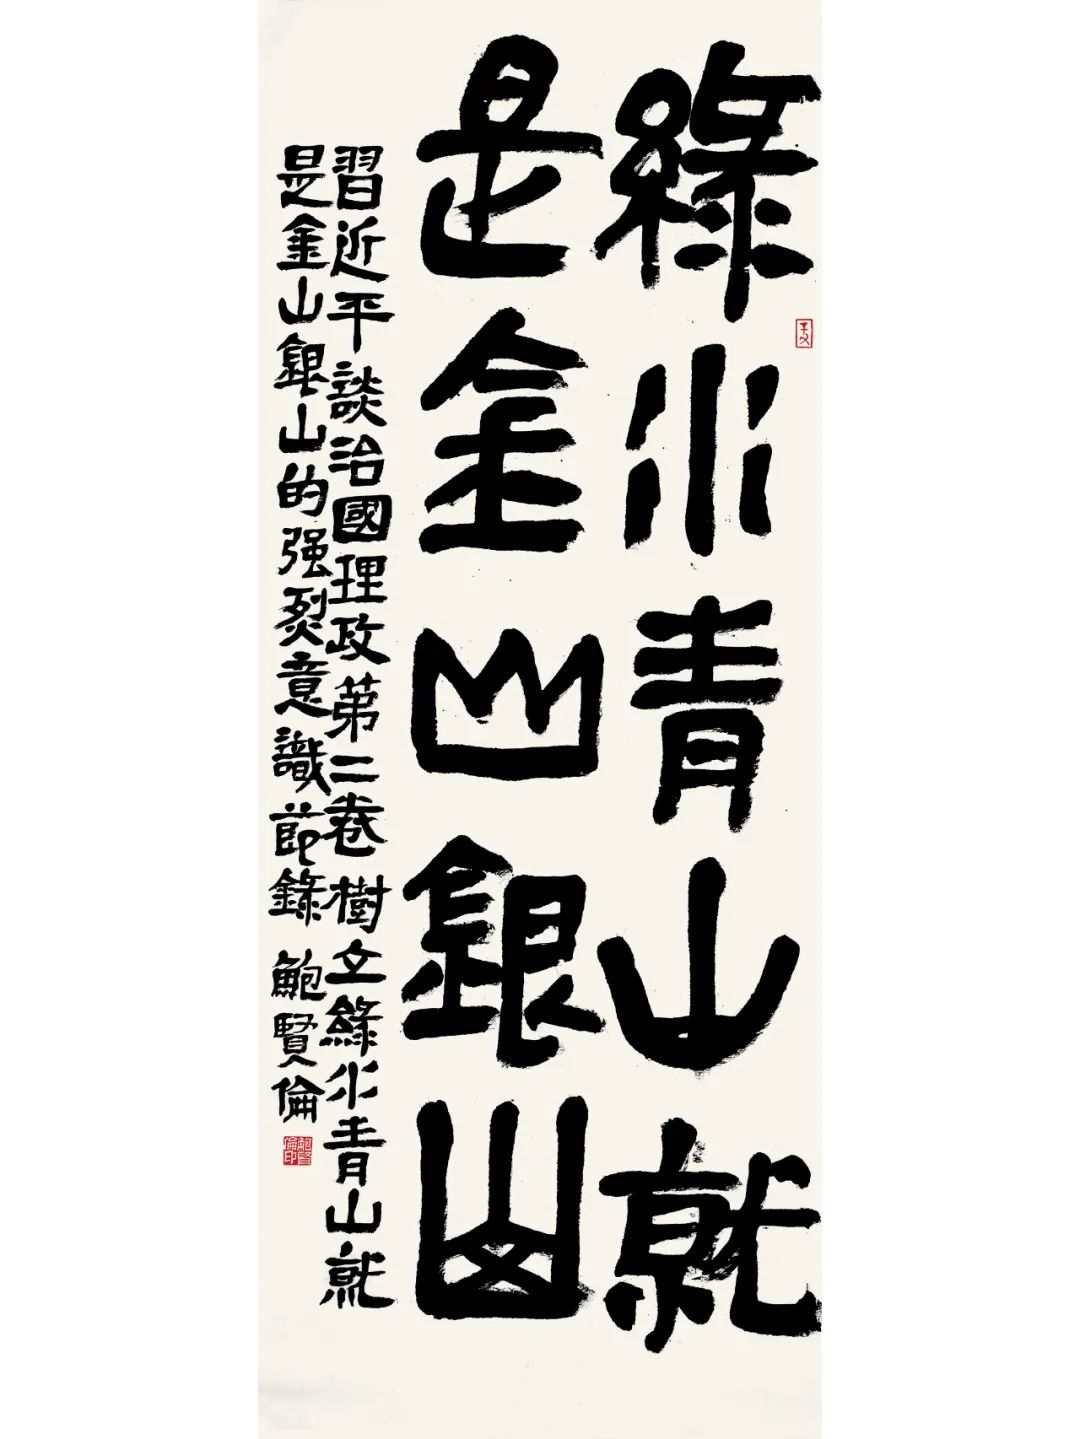 綠水青山就
是金山銀山
習近平談治國理政第二卷樹立綠水青山就
是金山銀山的强烈意識節錄 鮑賢倫
鮑賢倫印